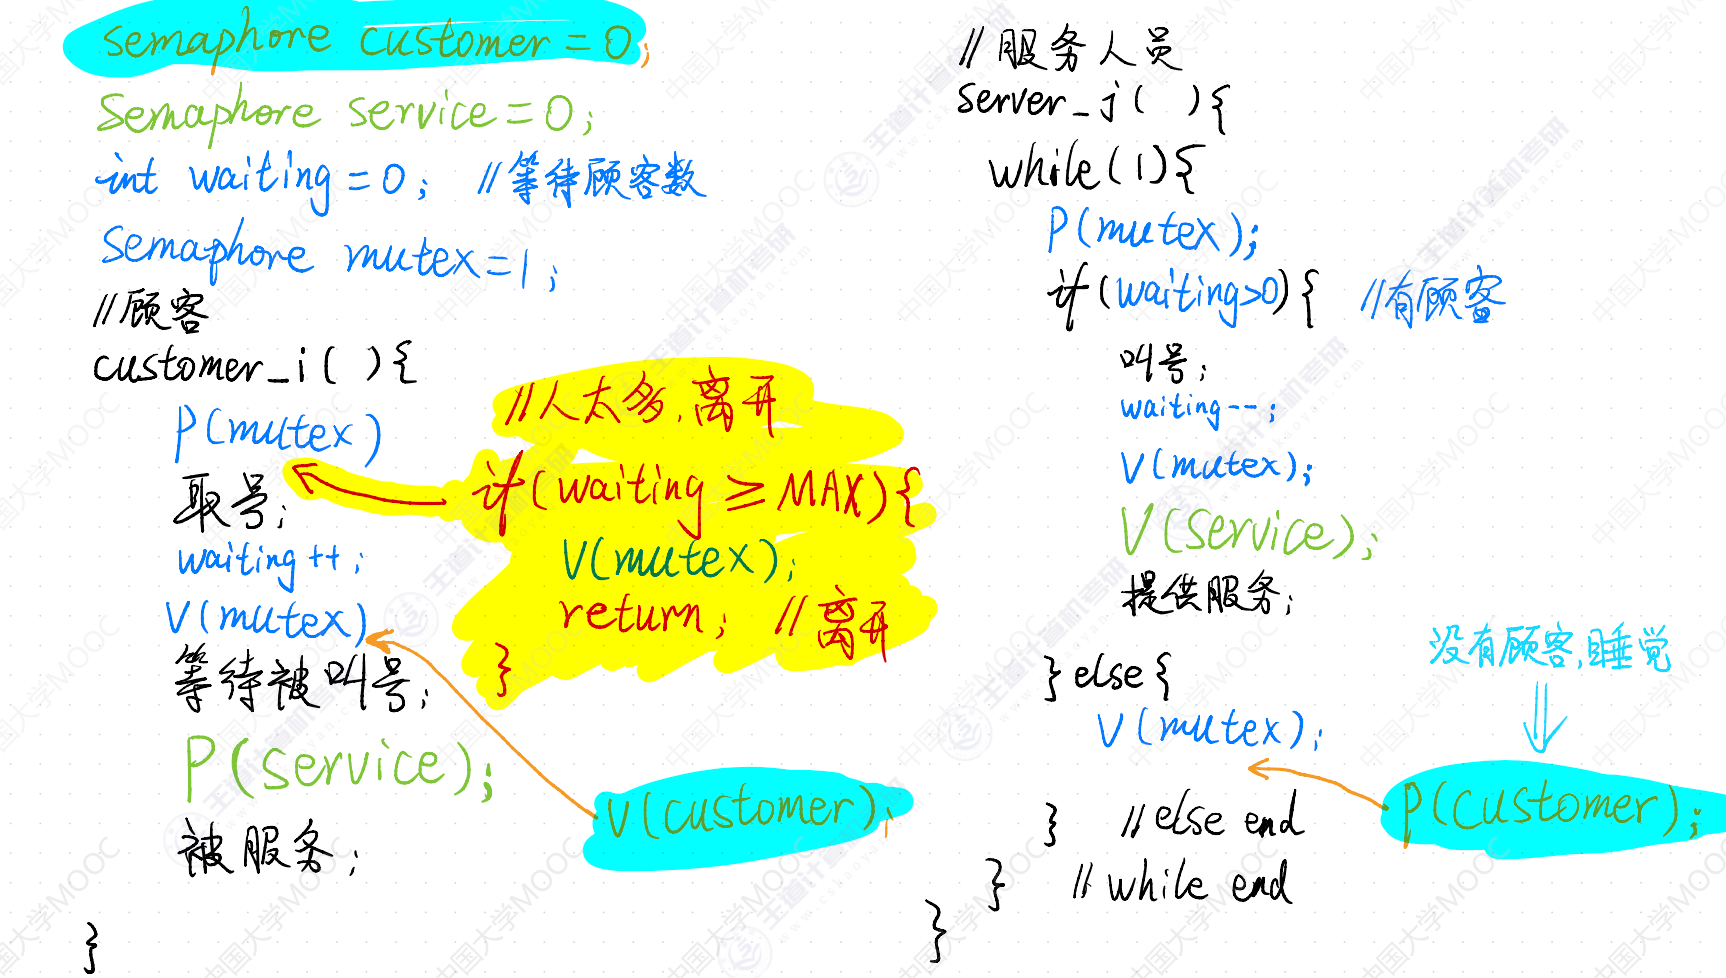 semaphore customer = 0;
Semaphore service = 0;
int waiting = 0; //等待顾客数
Semaphore mutex = 1;
//顾客
customer_i( ){
P(mutex)
取号;
waiting ++;
V(mutex)
等待被叫号;
P(service);
被服务;
}
//人太多,离开
if(waiting ≥ MAX){
V(mutex);
return; //离开
}
V(customer);
//服务人员
Server_j( ){
while(1){
P(mutex);
if(waiting>0){ //有顾客
叫号;
waiting--;
V(mutex);
V(service);
提供服务;
} else {
V(mutex);
没有顾客,睡觉
P(customer);
} //else end
} //while end
}
中国大学MOOC
王道计算机考研